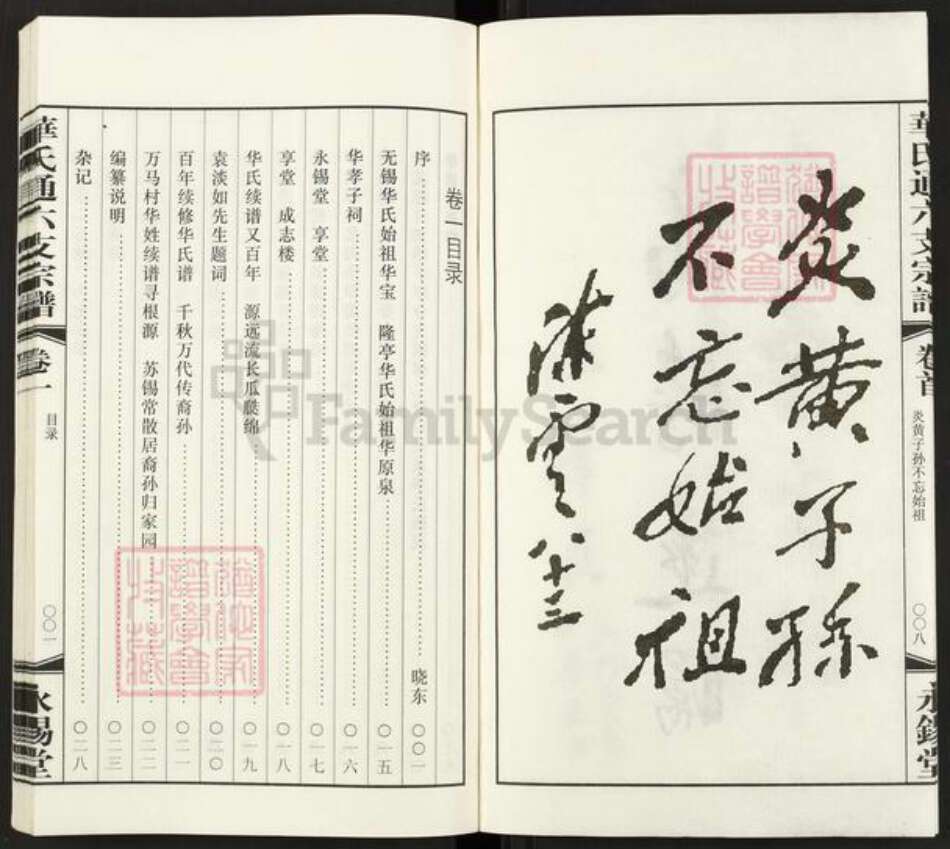 華氏通六支宗譜
卷首
炎黄子孙不忘始祖
〇〇八
永錫堂
炎黄子孫
不忘始祖
陈云八十三
卷一目录
序 晓东 〇〇一
无锡华氏始祖华宝 隆亭华氏始祖华原泉 〇一五
华孝子祠 〇一六
永锡堂 享堂 〇一七
享堂 成志楼 〇一八
华氏续谱又百年 源远流长瓜瓞绵 〇一九
袁淡如先生题词 〇二〇
百年续修华氏谱 千秋万代传裔孙 〇二一
万马村华姓续谱寻根源 苏锡常散居裔孙归家园 〇二二
编纂说明 〇二三
杂记 〇二八
華氏通六支宗譜
卷一
目录
〇〇一
永錫堂
FamilySearch